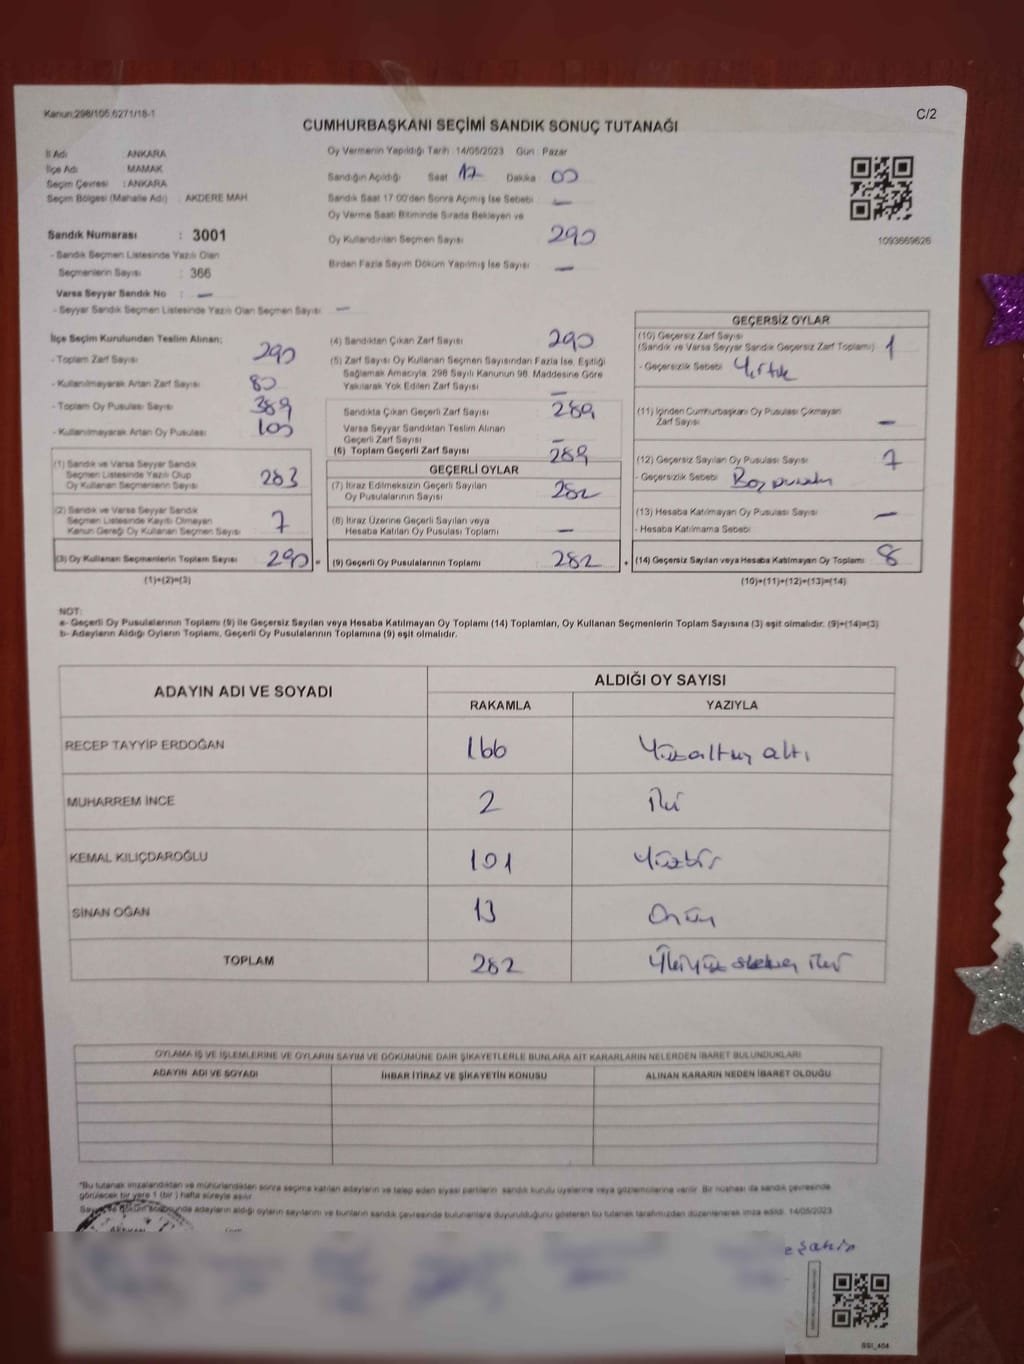 Kanun:298/105.6271/18-1
C/2
CUMHURBAŞKANI SEÇİMİ SANDIK SONUÇ TUTANAĞI
İl Adı : ANKARA
İlçe Adı : MAMAK
Seçim Çevresi : ANKARA
Seçim Bölgesi (Mahalle Adı) : AKDERE MAH
Sandık Numarası : 3001
- Sandık Seçmen Listesinde Yazılı Olan
Seçmenlerin Sayısı : 366
Varsa Seyyar Sandık No : —
- Seyyar Sandık Seçmen Listesinde Yazılı Olan Seçmen Sayısı —
Oy Vermenin Yapıldığı Tarih :14/05/2023 Gün : Pazar
Sandığın Açıldığı Saat 17 Dakika : 00
Sandık Saat 17.00'den Sonra Açılmış İse Sebebi : —
Oy Verme Saati Bitiminde Sırada Bekleyen ve
Oy Kullandırılan Seçmen Sayısı 290
Birden Fazla Sayım Döküm Yapılmış İse Sayısı —
1093669626
İlçe Seçim Kurulundan Teslim Alınan;
- Toplam Zarf Sayısı 290
- Kullanılmayarak Artan Zarf Sayısı 80
- Toplam Oy Pusulası Sayısı 389
- Kullanılmayarak Artan Oy Pusulası
(1) Sandık ve Varsa Seyyar Sandık
Seçmen Listesinde Yazılı Olup
Oy Kullanan Seçmenlerin Sayısı 283
(2) Sandık ve Varsa Seyyar Sandık
Seçmen Listesinde Kayıtlı Olmayan
Kanun Gereği Oy Kullanan Seçmen Sayısı 7
(3) Oy Kullanan Seçmenlerin Toplam Sayısı 290 =
(1)+(2)=(3)
(4) Sandıktan Çıkan Zarf Sayısı 290
(5) Zarf Sayısı Oy Kullanan Seçmen Sayısından Fazla İse, Eşitliği
Sağlamak Amacıyla, 298 Sayılı Kanunun 98. Maddesine Göre
Yakılarak Yok Edilen Zarf Sayısı —
Sandıkta Çıkan Geçerli Zarf Sayısı : 289
Varsa Seyyar Sandıktan Teslim Alınan
Geçerli Zarf Sayısı —
(6) Toplam Geçerli Zarf Sayısı 289
GEÇERLİ OYLAR
(7) İtiraz Edilmeksizin Geçerli Sayılan
Oy Pusulalarının Sayısı 282
(8) İtiraz Üzerine Geçerli Sayılan veya
Hesaba Katılan Oy Pusulası Toplamı —
(9) Geçerli Oy Pusulalarının Toplamı : 282 +
GEÇERSİZ OYLAR
(10) Geçersiz Zarf Sayısı
(Sandık ve Varsa Seyyar Sandık Geçersiz Zarf Toplamı) 1
- Geçersizlik Sebebi Yırtık
(11) İçinden Cumhurbaşkanı Oy Pusulası Çıkmayan
Zarf Sayısı —
(12) Geçersiz Sayılan Oy Pusulası Sayısı 7
- Geçersizlik Sebebi
(13) Hesaba Katılmayan Oy Pusulası Sayısı —
- Hesaba Katılmama Sebebi
(14) Geçersiz Sayılan veya Hesaba Katılmayan Oy Toplamı 8
(10)+(11)+(12)+(13)=(14)
NOT:
a- Geçerli Oy Pusulalarının Toplamı (9) ile Geçersiz Sayılan veya Hesaba Katılmayan Oy Toplamı (14) Toplamları, Oy Kullanan Seçmenlerin Toplam Sayısına (3) eşit olmalıdır. (9)+(14)=(3)
b- Adayların Aldığı Oyların Toplamı, Geçerli Oy Pusulalarının Toplamına (9) eşit olmalıdır.
ADAYIN ADI VE SOYADI
ALDIĞI OY SAYISI
RAKAMLA YAZIYLA
RECEP TAYYİP ERDOĞAN 166 Yüzaltmış altı
MUHARREM İNCE 2 İki
KEMAL KILIÇDAROĞLU 101 Yüzbir
SİNAN OĞAN 13 Onüç
TOPLAM 282 İkiyüz seksen iki
OYLAMA İŞ VE İŞLEMLERİNE VE OYLARIN SAYIM VE DÖKÜMÜNE DAİR ŞİKAYETLERLE BUNLARA AİT KARARLARIN NELERDEN İBARET BULUNDUKLARI
ADAYIN ADI VE SOYADI İHBAR İTİRAZ VE ŞİKAYETİN KONUSU ALINAN KARARIN NEDEN İBARET OLDUĞU
"Bu tutanak imzalandıktan ve mühürlendikten sonra seçime katılan adayların ve talep eden siyasi partilerin sandık kurulu üyelerine veya gözlemcilerine verilir. Bir nüshası da sandık çevresinde
görülecek bir yere 1 (bir) hafta süreyle asılır.
Sayım ve döküm sonucunda adayların aldığı oyların sayılarını ve bunların sandık çevresinde bulunanlara duyurulduğunu gösteren bu tutanak tarafımızdan düzenlenerek imza edildi. 14/05/2023